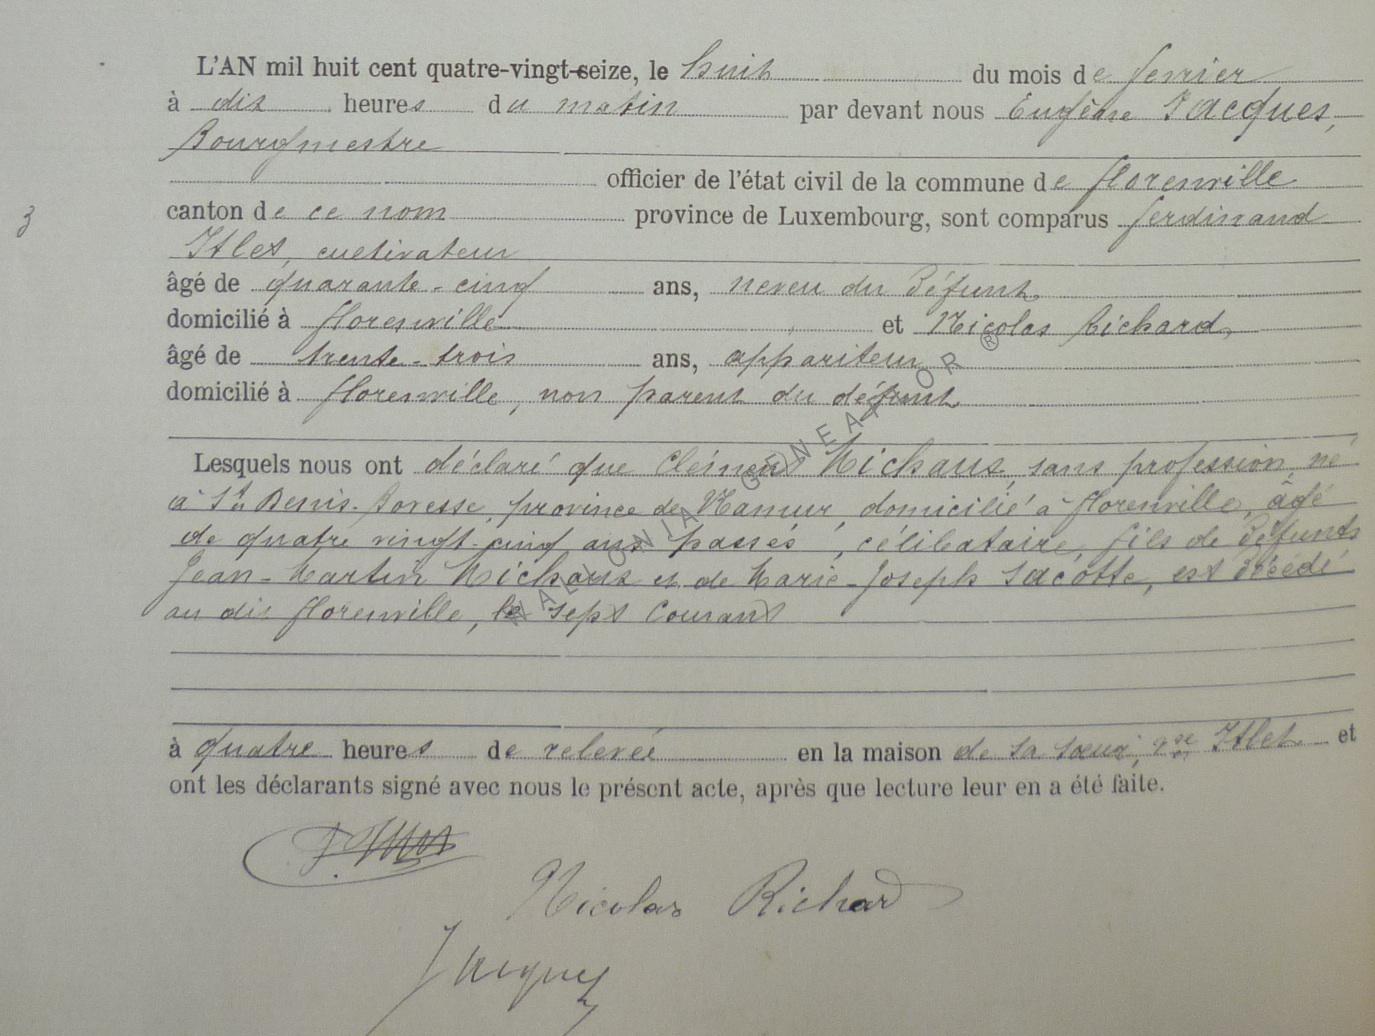 L'AN mil huit cent quatre-vingt-seize, le huit du mois de fevrier
à dix heures du matin par devant nous Eugène Jacques,
Bourgmestre
officier de l'état civil de la commune de florenville
canton de ce nom province de Luxembourg, sont comparus ferdinand
3
cultivateur
âgé de quarante-cinq ans, neveu du Défunt
domicilié à florenville et Nicolas Richard,
âgé de trente-trois ans, appariteur
domicilié à florenville, non parent du défunt
Lesquels nous ont déclaré que Clément Michaux, sans profession, né
à St Denis-Bovesse, province de Namur, domicilié à florenville, âgé
de quatre vingt-cinq ans passés, célibataire, fils de Défunts
Jean-Martin Michaux et de Marie-Joseph Lacotte, est Décédé
au dit florenville, le sept Courant
à quatre heures de relevée en la maison de sa sœur, et
ont les déclarants signé avec nous le présent acte, après que lecture leur en a été faite.
Nicolas Richard
Jacques
WALLONIA GENEATOR ®